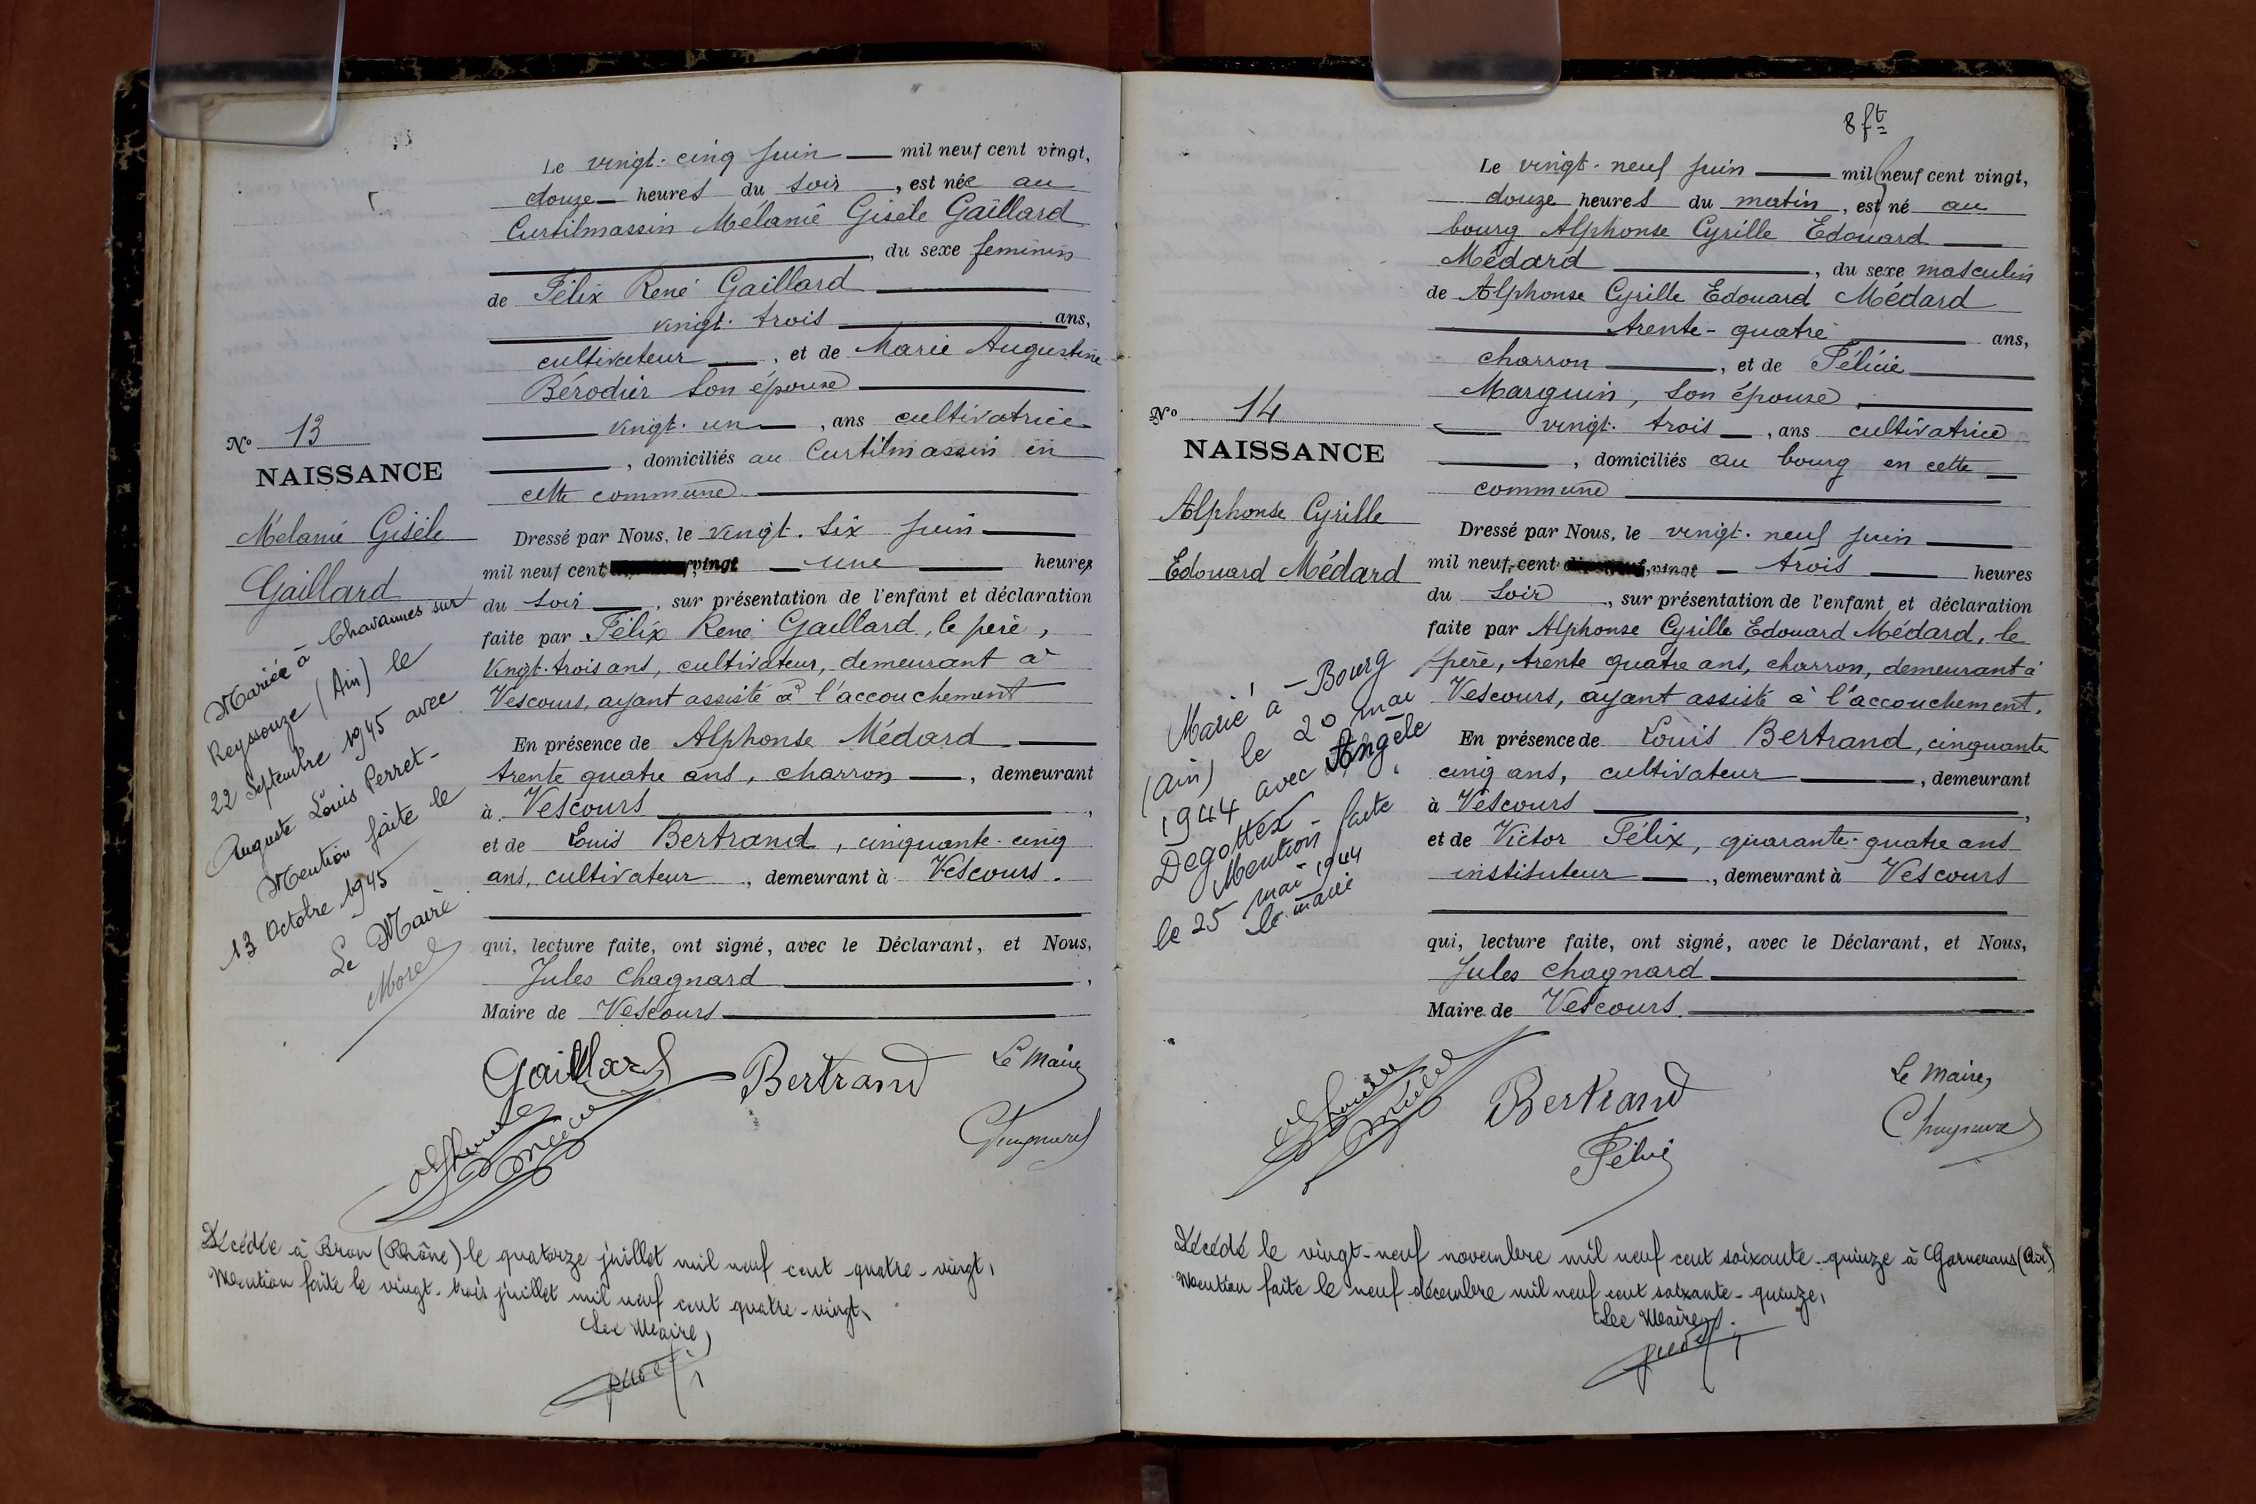 Le vingt-cinq juin mil neuf cent vingt,
douze heures du soir, est née au
Curtilmassin Mélanie Gisèle Gaillard
, du sexe feminin
de Félix René Gaillard
vingt-trois ans,
cultivateur, et de Marie Augustine
Bérodier son épouse
vingt-un, ans cultivatrice
, domiciliés au Curtilmassin en
cette commune
Dressé par Nous, le vingt-six juin
mil neuf cent vingt une heures
du soir, sur présentation de l'enfant et déclaration
faite par Félix René Gaillard, le père,
vingt-trois ans, cultivateur, demeurant à
Vescours, ayant assisté à l'accouchement
En présence de Alphonse Médard
trente quatre ans, charron, demeurant
à Vescours,
et de Louis Bertrand, cinquante-cinq
ans, cultivateur, demeurant à Vescours.
qui, lecture faite, ont signé, avec le Déclarant, et Nous,
Jules Chagnard,
Maire de Vescours
N° 13
NAISSANCE
Mélanie Gisèle
Gaillard
Mariée à Chavannes sur
Reyssouze (Ain) le
22 Septembre 1945 avec
Auguste Louis Perret-
Mention faite le
13 Octobre 1945
Le Maire
Morel
Gaillard
Bertrand
Le Maire
Chagnard
Alphonse
Médard
Décédée à Bron (Rhône) le quatorze juillet mil neuf cent quatre-vingt,
Mention faite le vingt-trois juillet mil neuf cent quatre-vingt,
Le Maire,
8 ft
Le vingt-neuf juin mil neuf cent vingt,
douze heures du matin, est né au
bourg Alphonse Cyrille Edouard
Médard, du sexe masculin
de Alphonse Cyrille Edouard Médard
trente-quatre ans,
charron, et de Félicie
Marguin, son épouse,
vingt-trois, ans cultivatrice
, domiciliés au bourg en cette
commune
Dressé par Nous, le vingt-neuf juin
mil neuf cent vingt trois heures
du soir, sur présentation de l'enfant et déclaration
faite par Alphonse Cyrille Edouard Médard, le
père, trente quatre ans, charron, demeurant à
Vescours, ayant assisté à l'accouchement.
En présence de Louis Bertrand, cinquante
cinq ans, cultivateur, demeurant
à Vescours,
et de Victor Félix, quarante-quatre ans
instituteur, demeurant à Vescours
qui, lecture faite, ont signé, avec le Déclarant, et Nous,
Jules Chagnard
Maire de Vescours.
N° 14
NAISSANCE
Alphonse Cyrille
Edouard Médard
Marié à - Bourg
(Ain) le 20 mai
1944 avec Angèle
Degottex
Mention faite
le 25 mai 1944
le maire
Alphonse
Médard
Bertrand
Félix
Le Maire,
Chagnard
Décédé le vingt-neuf novembre mil neuf cent soixante-quinze à Garnerans (Ain)
Mention faite le neuf décembre mil neuf cent soixante-quinze,
Le Maire,